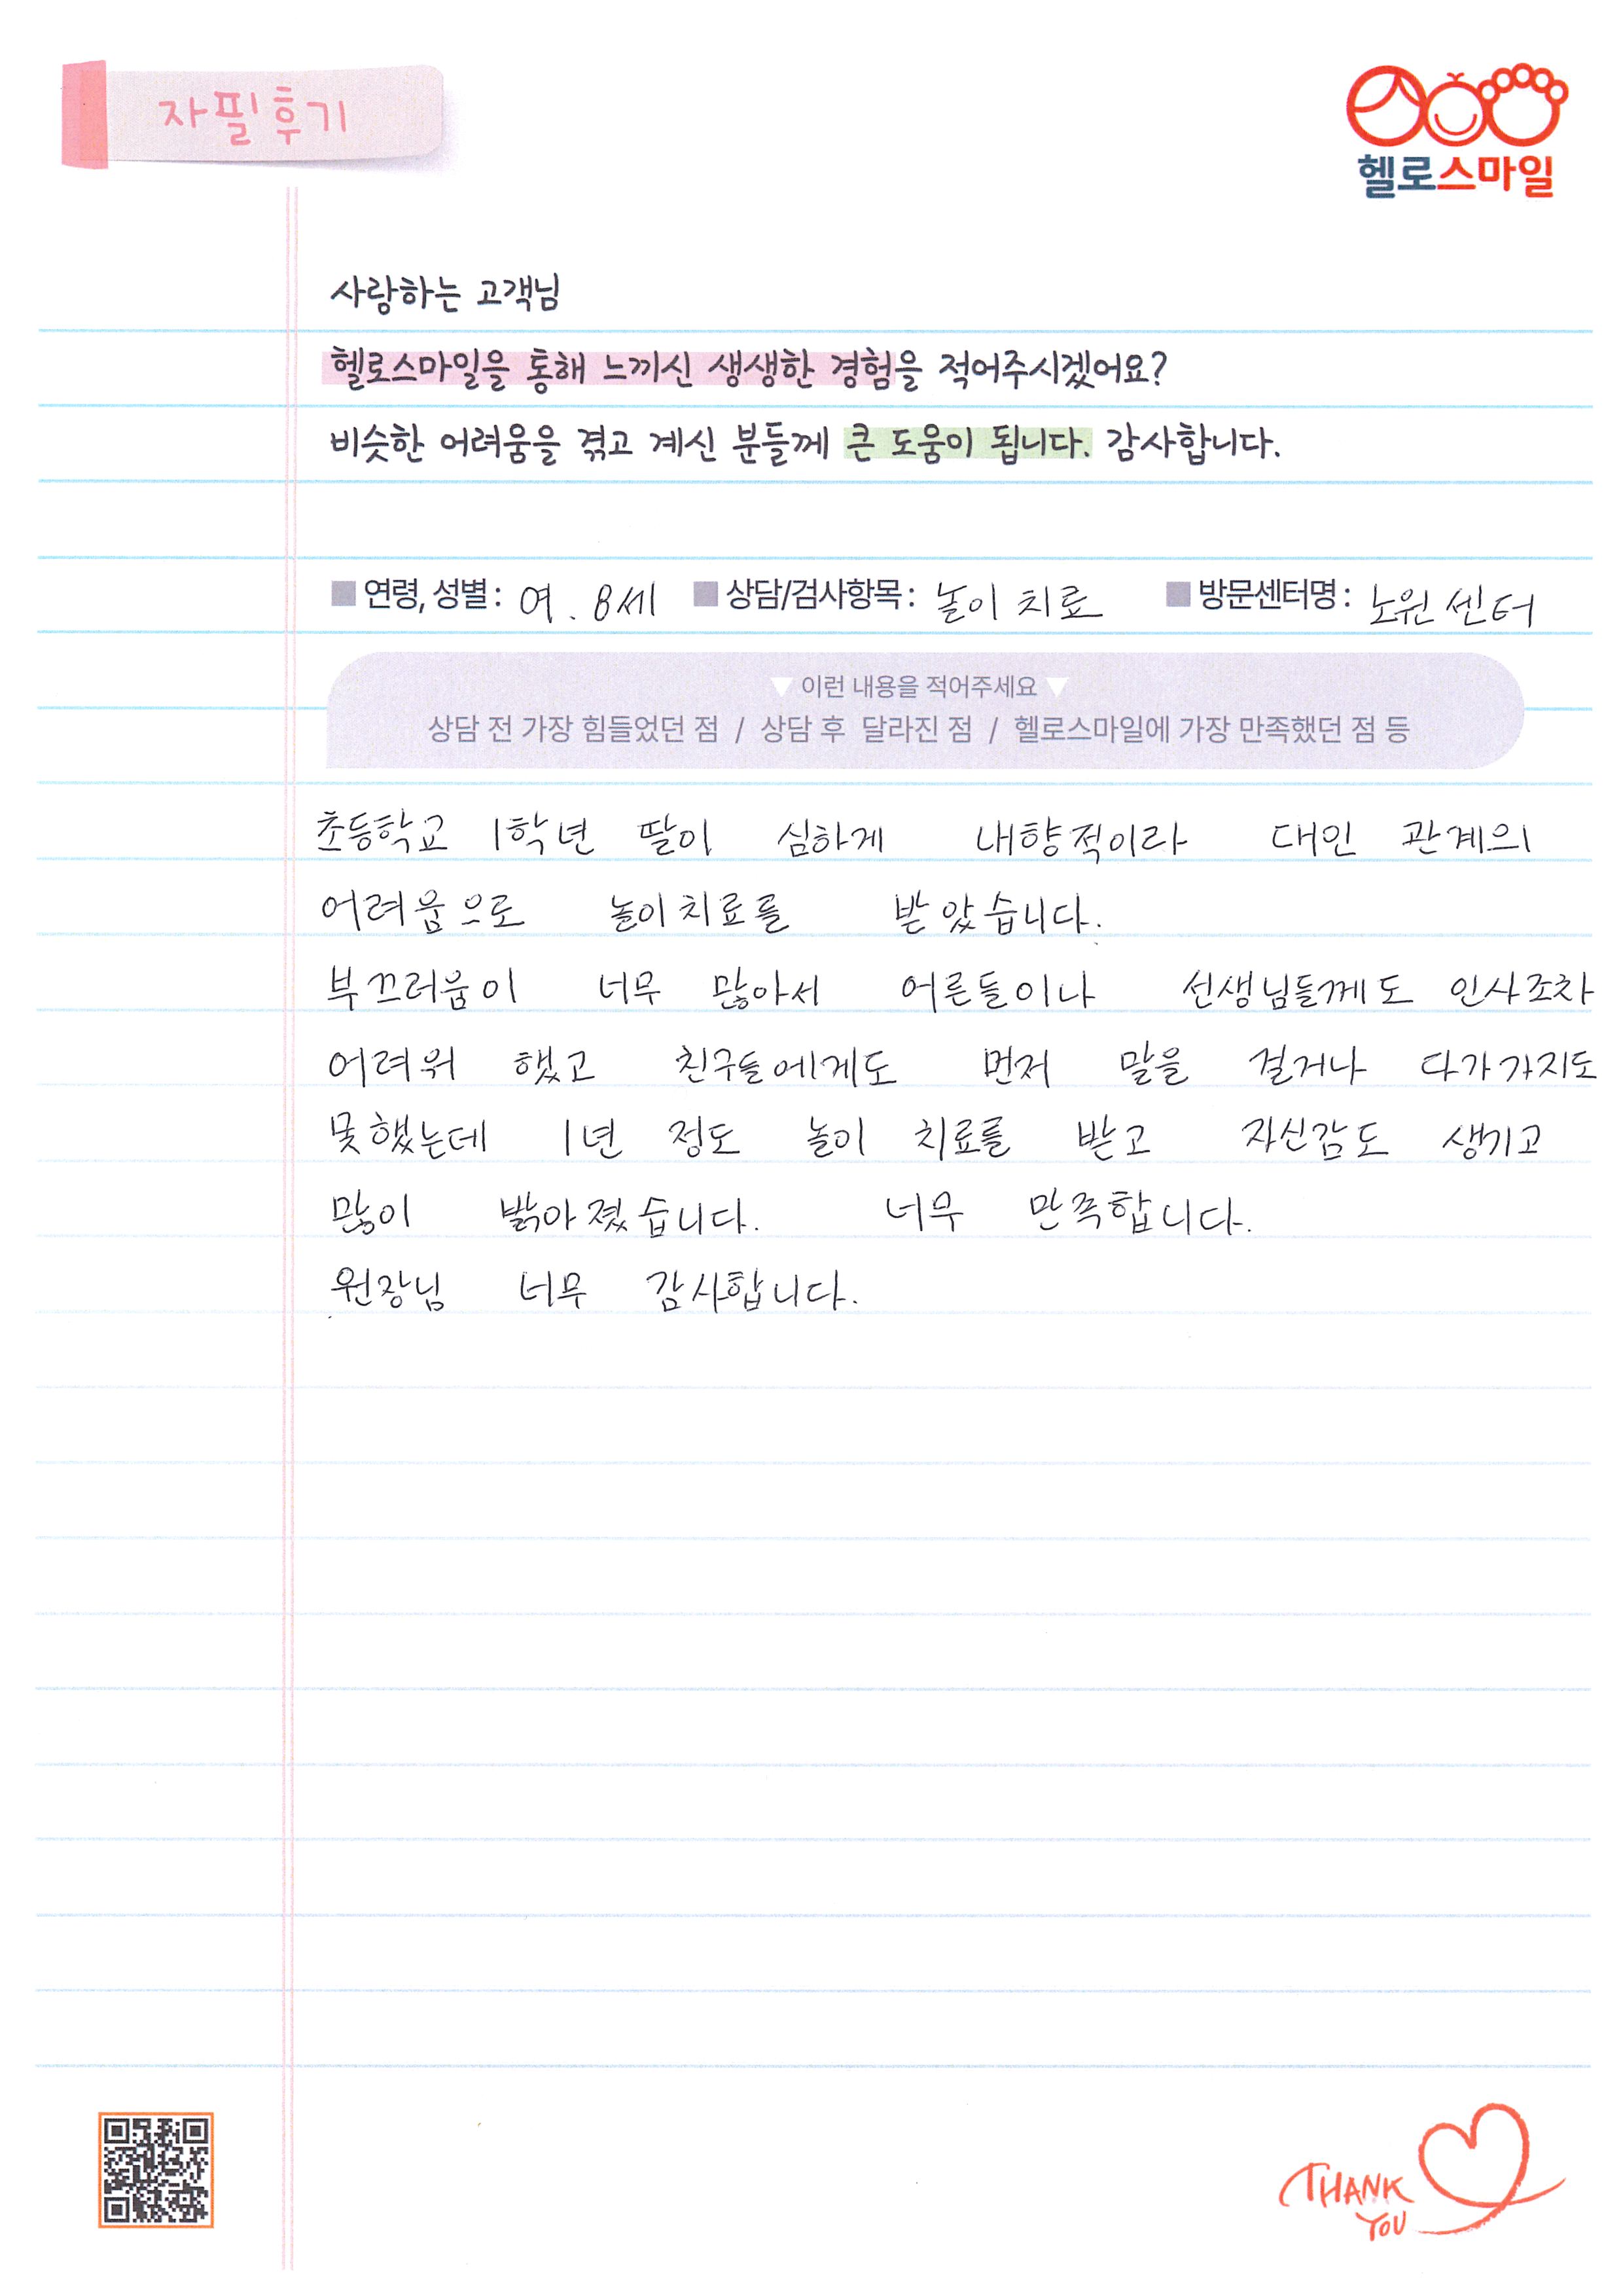 자필후기
헬로스마일
사랑하는 고객님
헬로스마일을 통해 느끼신 생생한 경험을 적어주시겠어요?
비슷한 어려움을 겪고 계신 분들께 큰 도움이 됩니다. 감사합니다.
■ 연령, 성별 : 여. 8세 ■ 상담/검사항목 : 놀이 치료 ■ 방문센터명 : 노원센터
▼ 이런 내용을 적어주세요 ▼
상담 전 가장 힘들었던 점 / 상담 후 달라진 점 / 헬로스마일에 가장 만족했던 점 등
초등학교 1학년 딸이 심하게 내향적이라 대인 관계의
어려움으로 놀이치료를 받았습니다.
부끄러움이 너무 많아서 어른들이나 선생님들께도 인사조차
어려워 했고 친구들에게도 먼저 말을 걸거나 다가가지도
못했는데 1년 정도 놀이 치료를 받고 자신감도 생기고
많이 밝아졌습니다. 너무 만족합니다.
원장님 너무 감사합니다.
THANK
YOU